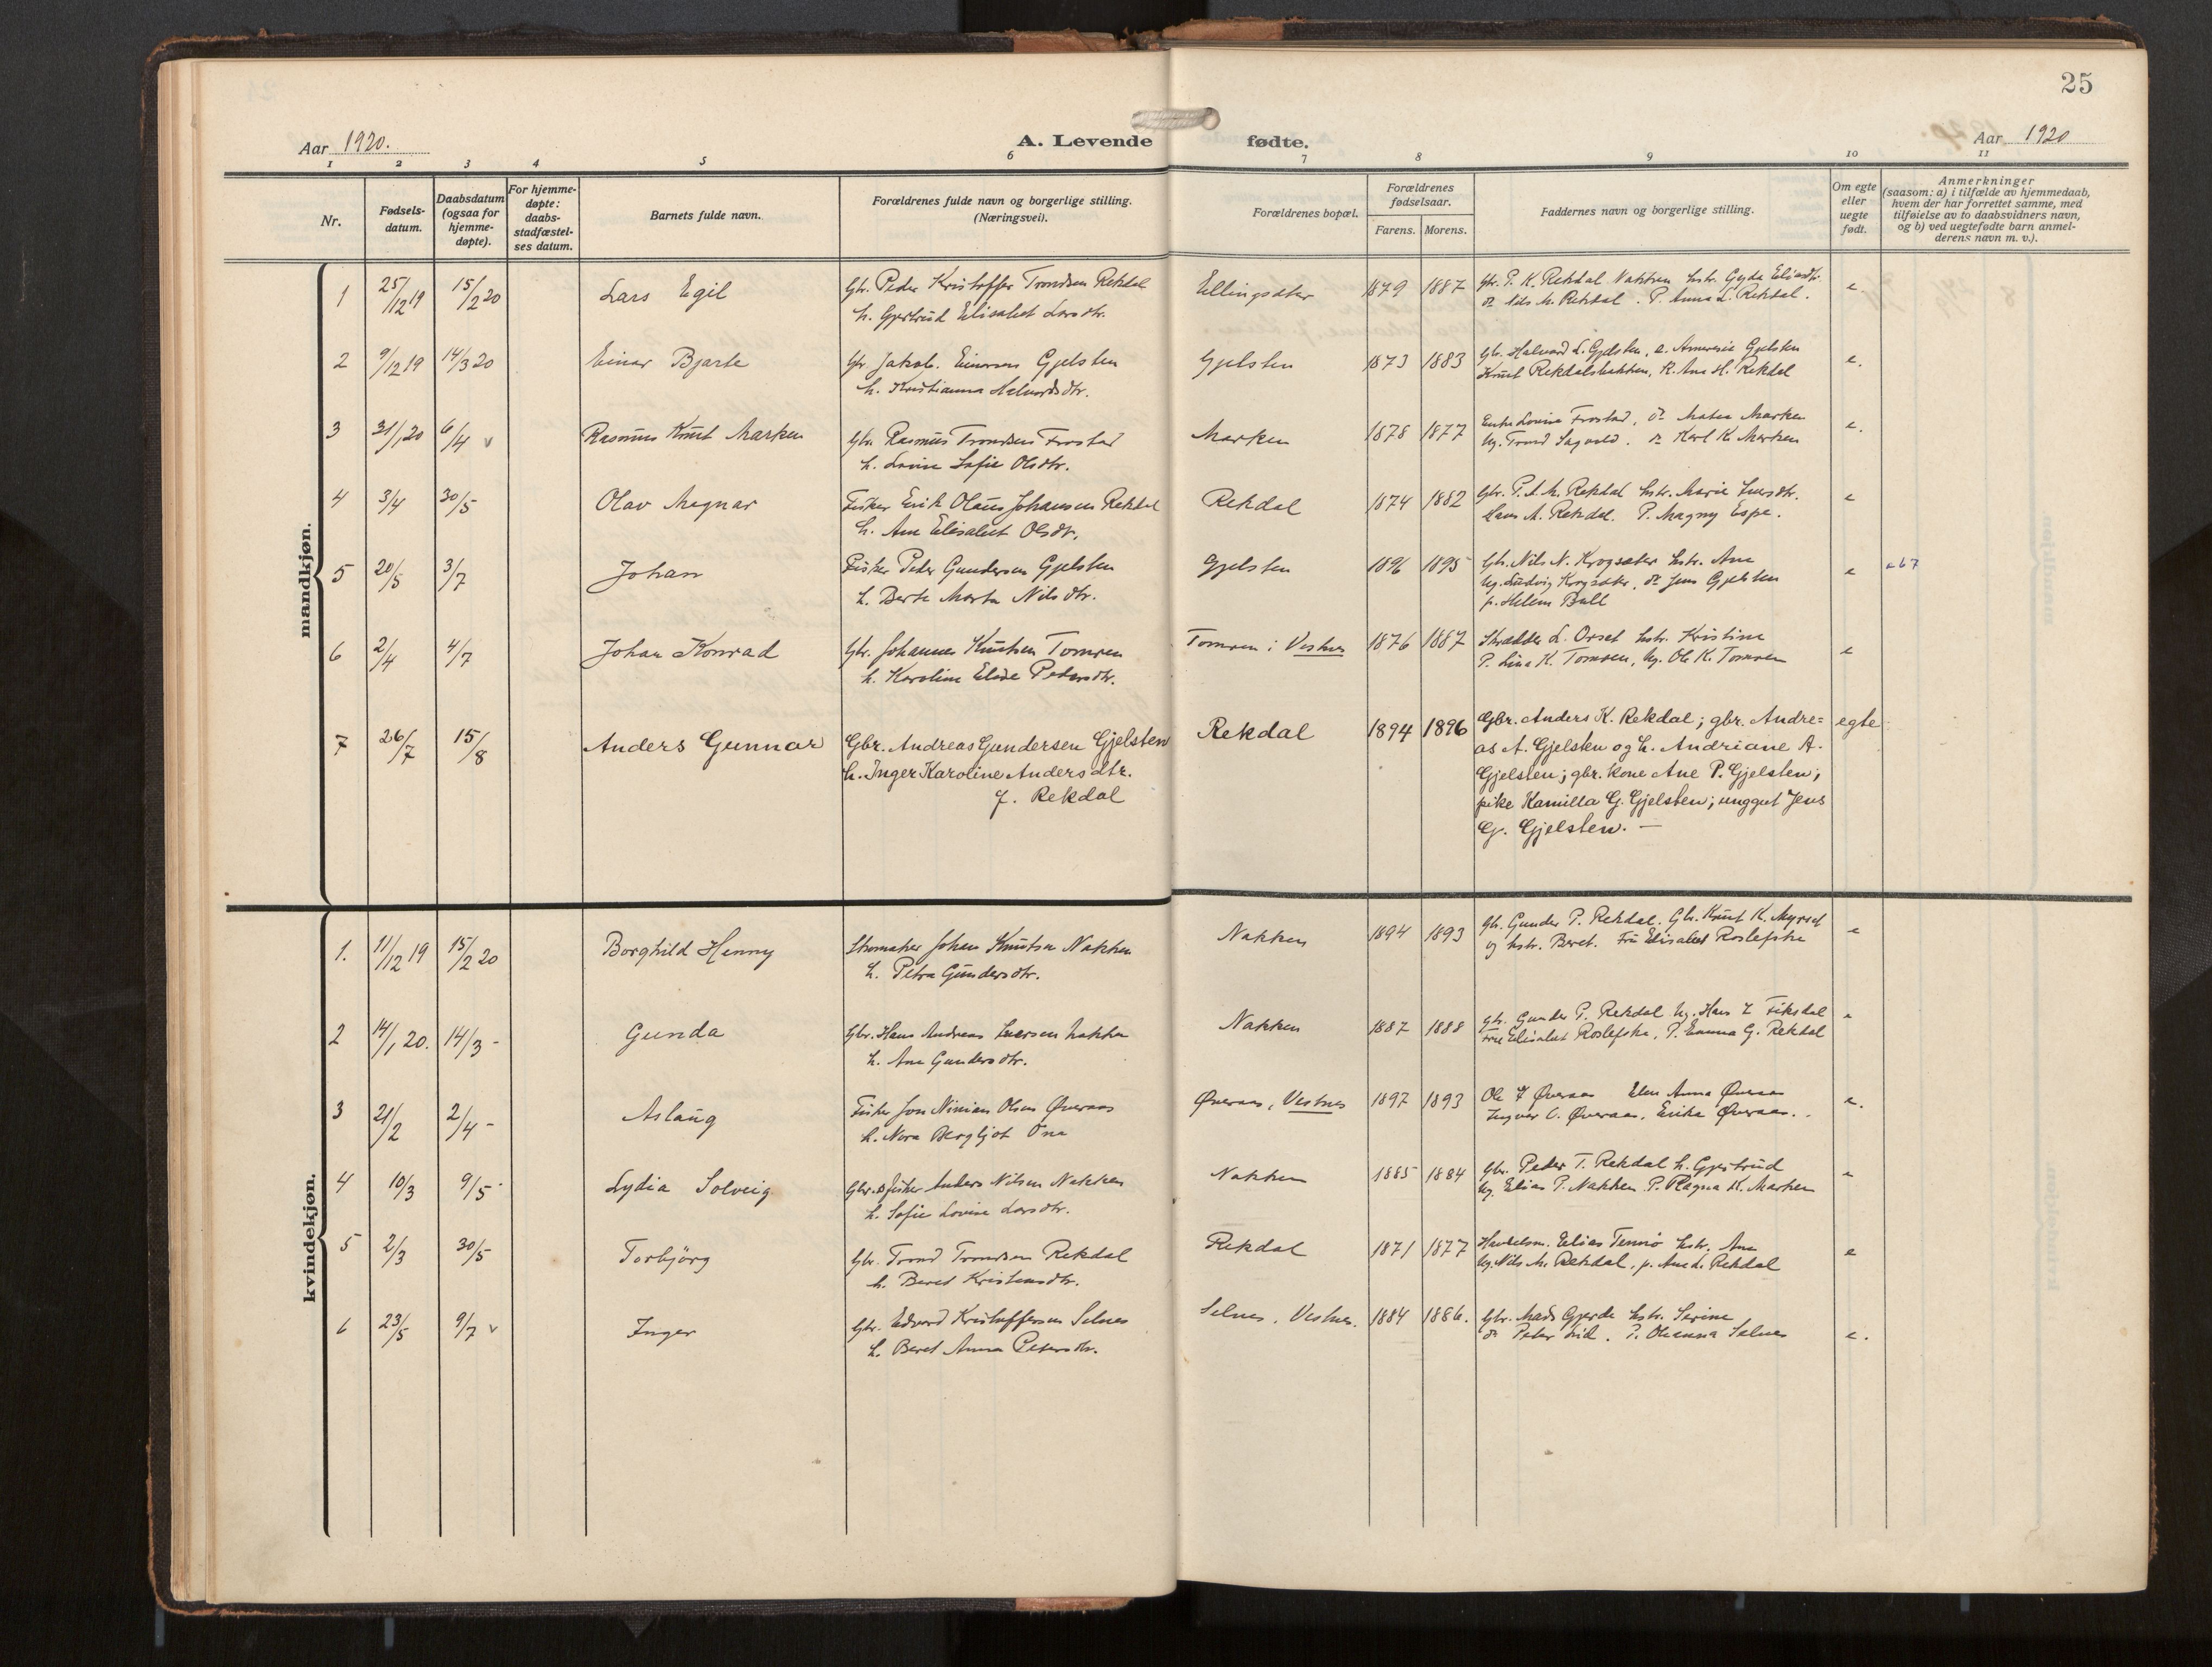 25
Aar 1920.
A. Levende fødte.
Aar 1920
1 2 3 4 5 6 7 8 9 10 11
Nr.
Fødsels-
datum.
Daabsdatum
(ogsaa for
hjemme-
døpte).
For hjemme-
døpte:
daabs-
stadfæstel-
ses datum.
Barnets fulde navn.
Forældrenes fulde navn og borgerlige stilling.
(Næringsvei).
Forældrenes bopæl.
Forældrenes
fødselsaar.
Farens. Morens.
Faddernes navn og borgerlige stilling.
Om egte
eller
uegte
født.
Anmerkninger
(saasom: a) i tilfælde av hjemmedaab,
hvem der har forrettet samme, med
tilføielse av to daabsvidners navn,
og b) ved uegtefødte barn anmel-
derens navn m. v.).
mandkjøn.
1 25/12 19 15/2 20 Lars Egil Gbr. Peder Kristoffer Trondsen Rekdal Ellingsæter 1879 1887 Gbr. P. K. Rekdal Nakken hstr. Gyda Eliasdtr. e.
h. Gjertrud Elisabet Larsdtr. Nils M. Rekdal. P. Anna L. Rekdal.
2 9/12 19 14/3 20 Einar Bjarte Gbr. Jakob Einarsen Gjelsten Gjelsten 1873 1883 Gbr. Halvard L. Gjelsten, Gjelsten e.
h. Kristianna Halvardsdtr. Knut Rekdalsbakken, K. Ane H. Rekdal
3 31/1 20 6/4 v Rasmus Knut Marken Gbr. Rasmus Trondsen Frostad Marken 1878 1877 Enke Lovise Frostad, Marken e.
h. Lovise Sofie Olsdtr. Ug. Trond Karl K. Marken
4 3/4 30/5 Olav Magnar Fisker Erik Olaus Johansen Rekdal Rekdal 1874 1882 Gbr. P. A. M. Rekdal hstr. Marie Iversdtr. e
h. Ane Elisabet Olsdtr. Hans A. Rekdal. P. Magny Espe.
5 20/5 3/7 Johan Fisker Peder Gundersen Gjelsten Gjelsten 1896 1895 Gbr. Nils N. Krogsæter hstr. Ane e
h. Berte Marta Nilsdtr. Ug. Ludvig Krogsæter, Jens Gjelsten
p. Helene Bull
6 2/4 4/7 Johan Konrad Gbr. Johannes Knutsen Tomren Tomren i Vestnes 1876 1887 Skrædder L. Orset hstr. Kristine e
h. Karoline Elise Pedersdtr. P. Lina K. Tomren, Ug. Ole K. Tomren
7 26/7 15/8 Anders Gunnar Gbr. Andreas Gundersen Gjelsten Rekdal 1894 1896 Gbr. Anders K. Rekdal; gbr. Andre= egte
h. Inger Karoline Andersdtr. as A. Gjelsten og h. Andriane A.
f. Rekdal Gjelsten; gbr. kone Ane P. Gjelsten;
pike Kamilla G. Gjelsten; unggut Jens
G. Gjelsten. —
kvindekjøn.
1. 11/12 19 15/2 20 Borghild Henny Skomaker Johan Knutsen Nakken Nakken 1894 1893 Gbr. Gunder P. Rekdal. Gbr. Knut K. Myrset e
h. Petra Gundersdtr. og hstr. Beret. Fru Elisabet Roslefske
2 14/1 20. 14/3 - Gunda Gbr. Hans Andreas Iversen Nakken Nakken 1887 1888 Gbr. Gunder P. Rekdal Ug. Hans I. Fiksdal e
h. Ane Gundersdtr. Fru Elisabet Roslefske, P. Emma G. Rekdal
3 21/2 2/4 - Aslaug Fisker Jon Ninian Olsen Øveraas Øveraas, Vestnes 1897 1893 Ole J Øveraas Anna Øveraas e.
h. Nora Bergljot Ona Ingvar O. Øveraas, Erika Øveraas.
4 10/3 9/5 - Lydia Solveig Gbr. & fisker Anders Nilsen Nakken Nakken 1885 1884 Gbr. Peder T. Rekdal h. Gjertrud e
h. Sofie Lovise Larsdtr. Ug. Elias P. Nakken. P. Ragna K. Marken
5 2/3 30/5 Torbjörg Gbr. Trond Trondsen Rekdal Rekdal 1871 1877 Elias Tennö hstr. Ane e
h. Beret Kristensdtr. Ug. Nils M. Rekdal, p. Ane L. Rekdal
6 23/5 9/7 v Inger Gbr. Edvard Kristoffersen Selnes Selnes, Vestnes. 1884 1886. Gbr. Mads Gjerde hstr. Serine
h. Beret Anna Petersdtr. Peter Lid. P. Oleanna Selnes e.